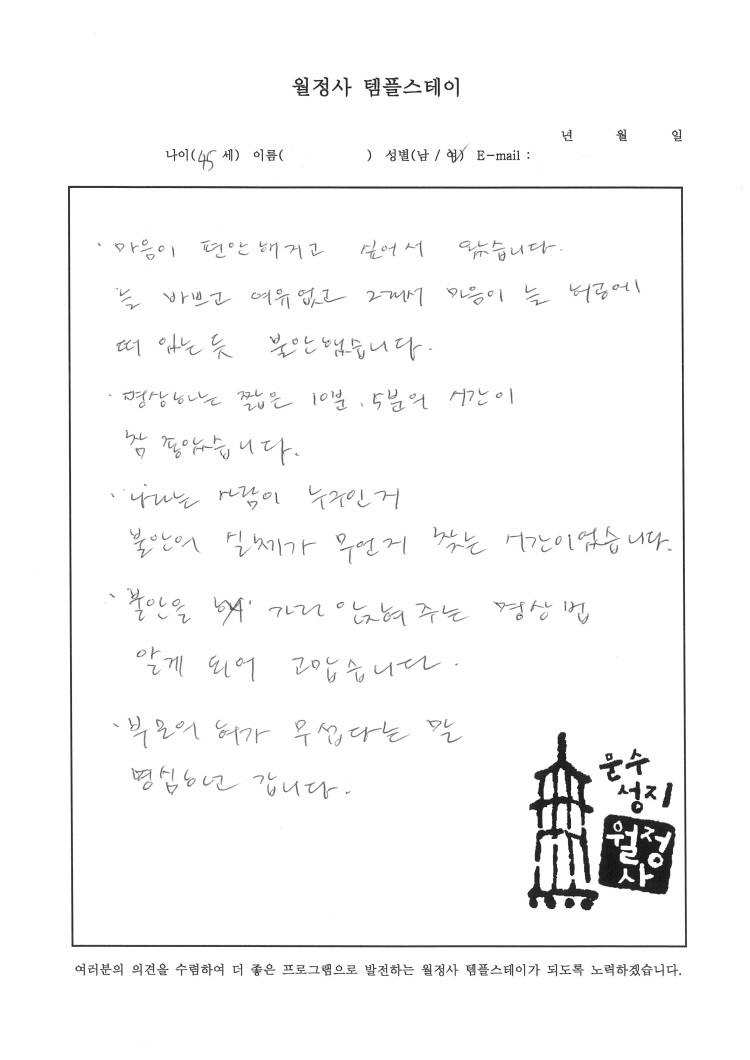 월정사 템플스테이
년 월 일
나이(45 세) 이름( ) 성별(남 / 여) E-mail :
· 마음이 편안해지고 싶어서 왔습니다.
늘 바쁘고 여유없고 그래서 마음이 늘 허공에
떠 있는 듯 불안했습니다.
· 명상하는 짧은 10분, 5분의 시간이
참 좋았습니다.
· 나라는 사람이 누구인지
불안의 실체가 무언지 찾는 시간이었습니다.
· 불안을 가라앉혀 주는 명상법
알게 되어 고맙습니다.
· 부모의 혀가 무섭다는 말
명심하고 갑니다.
문수
성지
월정
사
여러분의 의견을 수렴하여 더 좋은 프로그램으로 발전하는 월정사 템플스테이가 되도록 노력하겠습니다.